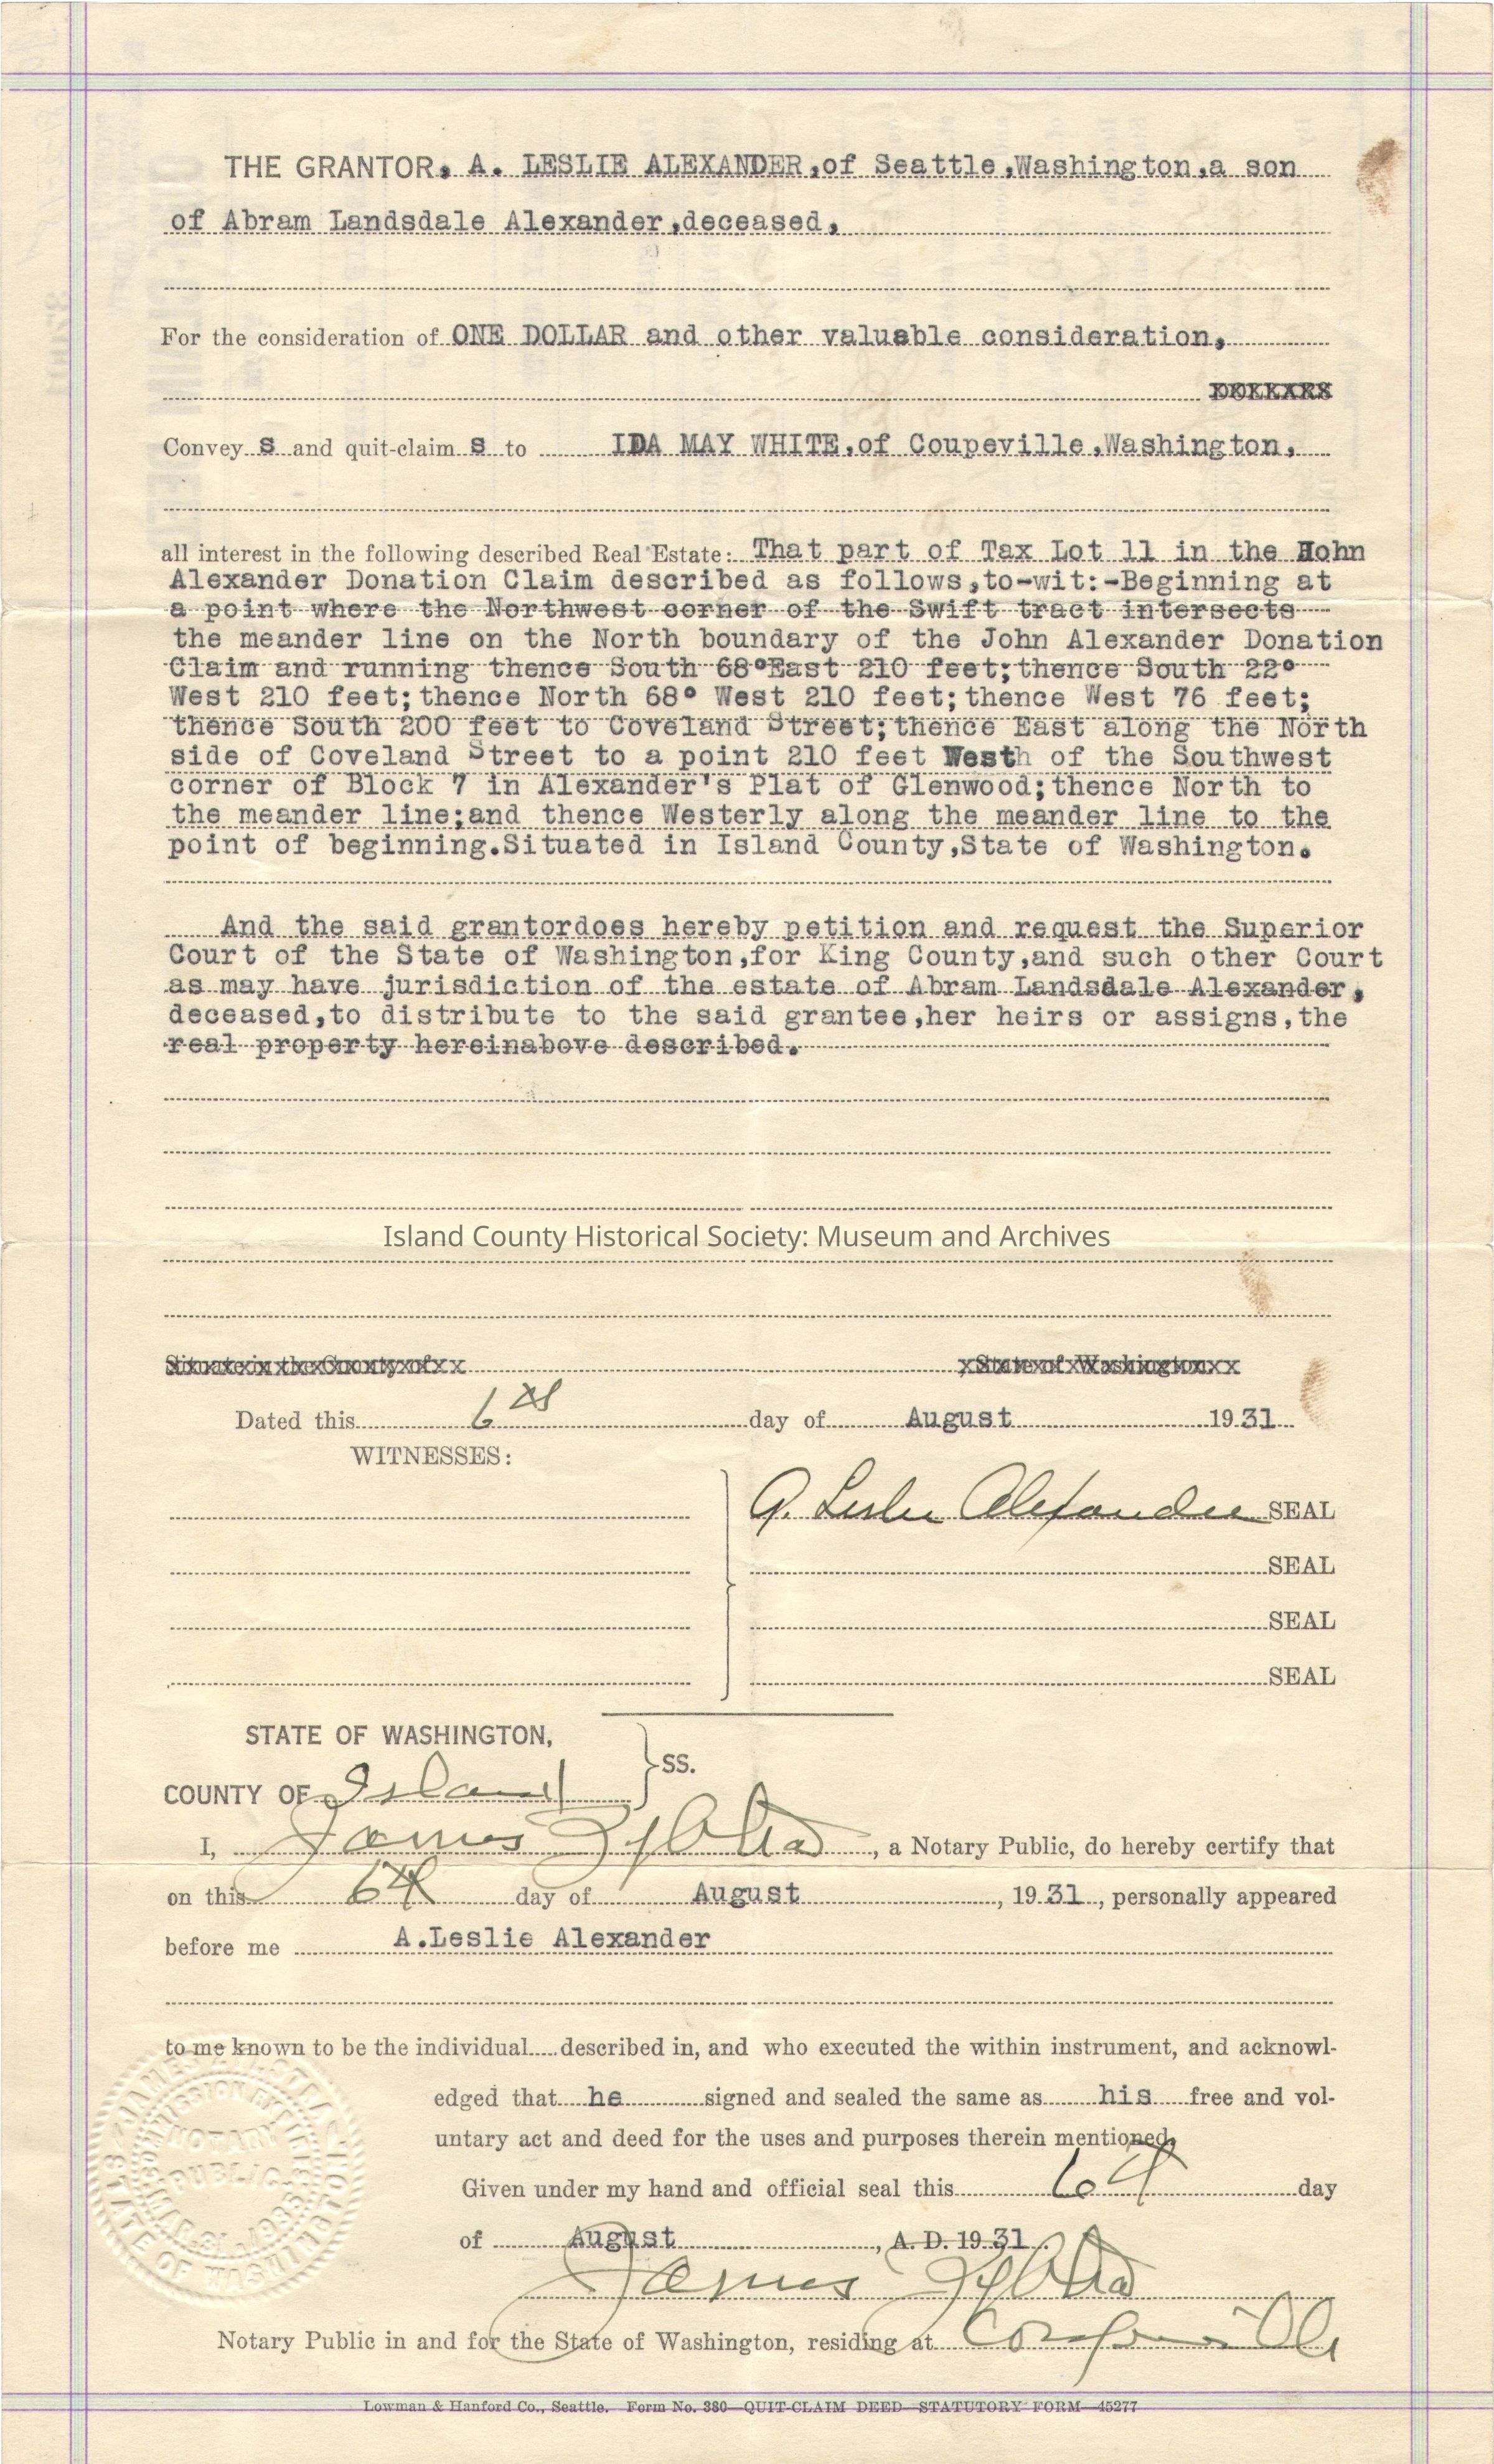 THE GRANTOR, A. LESLIE ALEXANDER,of Seattle,Washington,a son
of Abram Landsdale Alexander,deceased,
For the consideration of ONE DOLLAR and other valuable consideration,
DOLLARS
Convey s and quit-claim s to IDA MAY WHITE,of Coupeville,Washington,
all interest in the following described Real Estate: That part of Tax Lot 11 in the Hohn
Alexander Donation Claim described as follows,to-wit:-Beginning at
a point where the Northwest corner of the Swift tract intersects
the meander line on the North boundary of the John Alexander Donation
Claim and running thence South 68°East 210 feet;thence South 22°
West 210 feet;thence North 68° West 210 feet;thence West 76 feet;
thence South 200 feet to Coveland Street;thence East along the North
side of Coveland Street to a point 210 feet Westh of the Southwest
corner of Block 7 in Alexander's Plat of Glenwood;thence North to
the meander line;and thence Westerly along the meander line to the
point of beginning.Situated in Island County,State of Washington.
And the said grantordoes hereby petition and request the Superior
Court of the State of Washington,for King County,and such other Court
as may have jurisdiction of the estate of Abram Landsdale Alexander,
deceased,to distribute to the said grantee,her heirs or assigns,the
real property hereinabove described.
Island County Historical Society: Museum and Archives
Situate in the County of State of Washington
Dated this 6th day of August 1931
WITNESSES:
A. Leslie Alexander SEAL
SEAL
SEAL
SEAL
STATE OF WASHINGTON,
COUNTY OF Island } SS.
I, James Zylstra, a Notary Public, do hereby certify that
on this 6th day of August, 1931, personally appeared
before me A.Leslie Alexander
to me known to be the individual described in, and who executed the within instrument, and acknowl-
edged that he signed and sealed the same as his free and vol-
untary act and deed for the uses and purposes therein mentioned.
Given under my hand and official seal this 6th day
of August, A. D. 1931.
James Zylstra
Notary Public in and for the State of Washington, residing at Coupeville
JAMES ZYLSTRA
STATE OF WASHINGTON
COMMISSION EXPIRES
NOTARY
PUBLIC
Lowman & Hanford Co., Seattle. Form No. 380 QUIT-CLAIM DEED STATUTORY FORM 45277